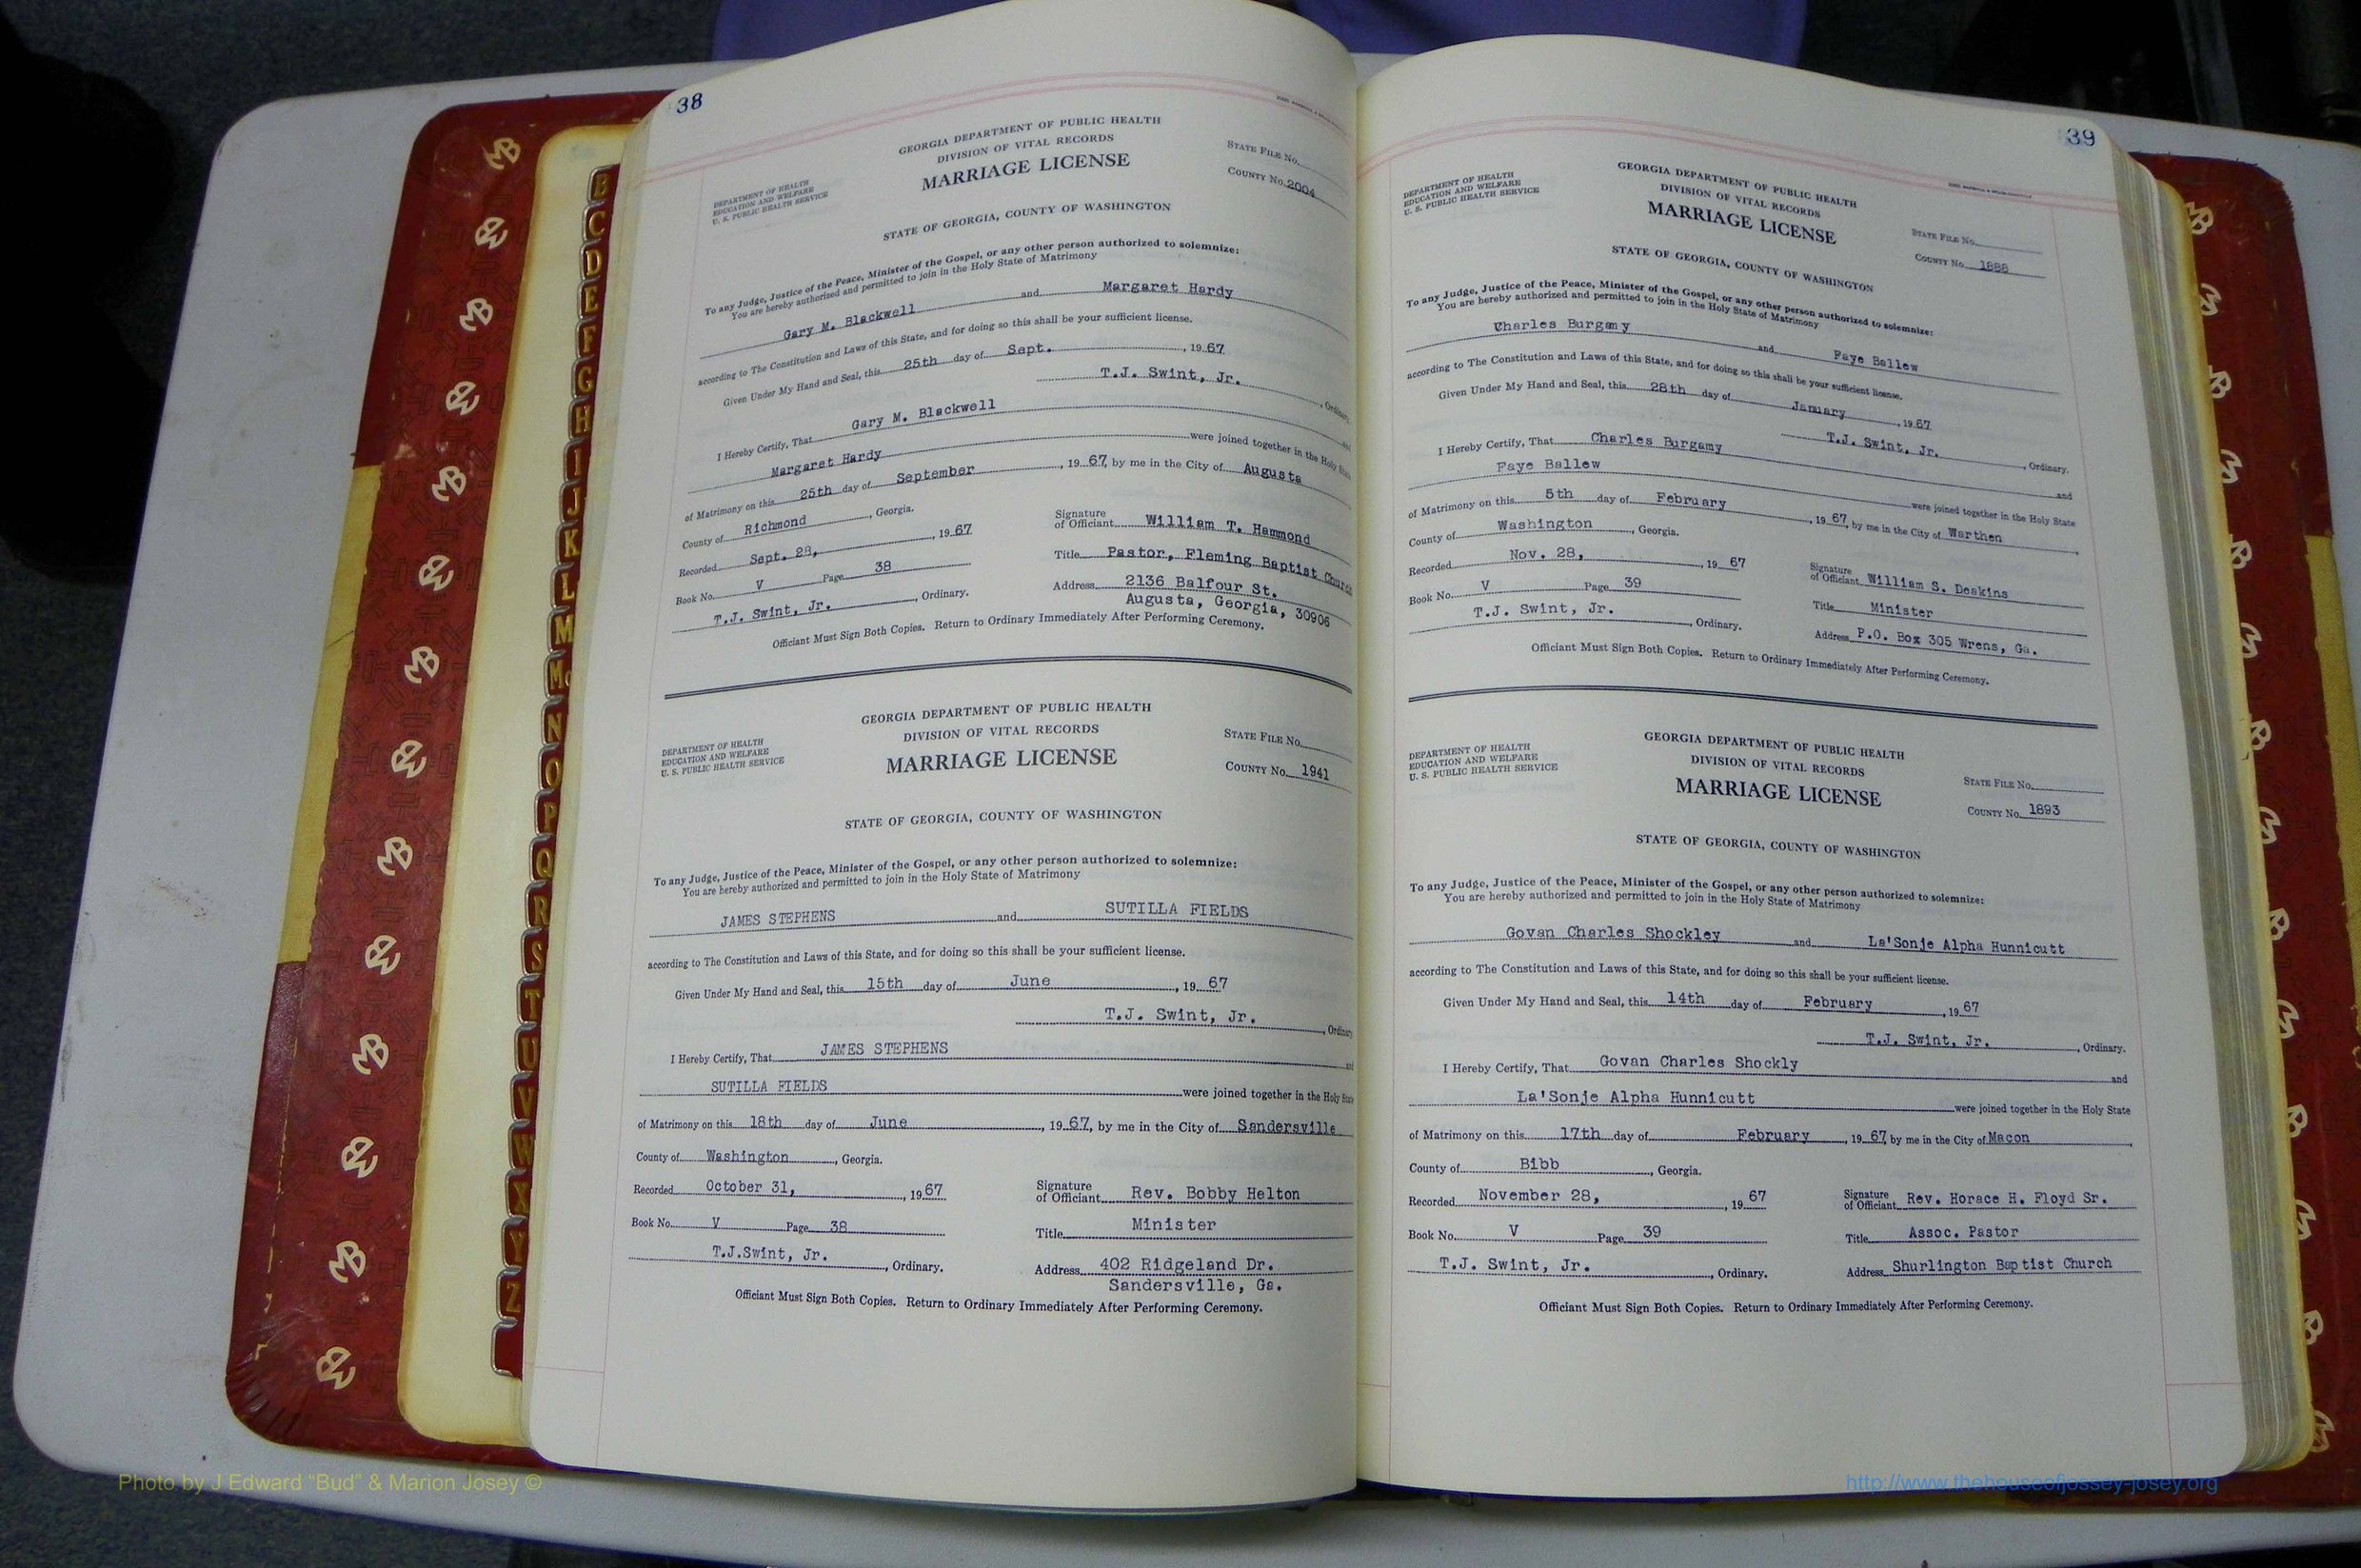 38
GEORGIA DEPARTMENT OF PUBLIC HEALTH
DIVISION OF VITAL RECORDS
MARRIAGE LICENSE
DEPARTMENT OF HEALTH
EDUCATION AND WELFARE
U. S. PUBLIC HEALTH SERVICE
STATE FILE No.
COUNTY No. 2004
STATE OF GEORGIA, COUNTY OF WASHINGTON
To any Judge, Justice of the Peace, Minister of the Gospel, or any other person authorized to solemnize:
You are hereby authorized and permitted to join in the Holy State of Matrimony
Gary M. Blackwell and Margaret Hardy
according to The Constitution and Laws of this State, and for doing so this shall be your sufficient license.
Given Under My Hand and Seal, this 25th day of Sept. , 19 67
T.J. Swint, Jr. , Ordinary
I Hereby Certify, That Gary M. Blackwell and
Margaret Hardy were joined together in the Holy State
of Matrimony on this 25th day of September , 19 67, by me in the City of Augusta
County of Richmond , Georgia.
Recorded Sept. 28, , 19 67
Book No. V Page 38
T.J. Swint, Jr. , Ordinary.
Signature
of Officiant William T. Hammond
Title Pastor, Fleming Baptist Church
Address 2136 Balfour St.
Augusta, Georgia, 30906
Officiant Must Sign Both Copies. Return to Ordinary Immediately After Performing Ceremony.
GEORGIA DEPARTMENT OF PUBLIC HEALTH
DIVISION OF VITAL RECORDS
MARRIAGE LICENSE
DEPARTMENT OF HEALTH
EDUCATION AND WELFARE
U. S. PUBLIC HEALTH SERVICE
STATE FILE No.
COUNTY No. 1941
STATE OF GEORGIA, COUNTY OF WASHINGTON
To any Judge, Justice of the Peace, Minister of the Gospel, or any other person authorized to solemnize:
You are hereby authorized and permitted to join in the Holy State of Matrimony
JAMES STEPHENS and SUTILLA FIELDS
according to The Constitution and Laws of this State, and for doing so this shall be your sufficient license.
Given Under My Hand and Seal, this 15th day of June , 19 67
T.J. Swint, Jr. , Ordinary
I Hereby Certify, That JAMES STEPHENS and
SUTILLA FIELDS were joined together in the Holy State
of Matrimony on this 18th day of June , 19 67, by me in the City of Sandersville
County of Washington , Georgia.
Recorded October 31, , 19 67
Book No. V Page 38
T.J.Swint, Jr. , Ordinary.
Signature
of Officiant Rev. Bobby Helton
Title Minister
Address 402 Ridgeland Dr.
Sandersville, Ga.
Officiant Must Sign Both Copies. Return to Ordinary Immediately After Performing Ceremony.
39
GEORGIA DEPARTMENT OF PUBLIC HEALTH
DIVISION OF VITAL RECORDS
MARRIAGE LICENSE
DEPARTMENT OF HEALTH
EDUCATION AND WELFARE
U. S. PUBLIC HEALTH SERVICE
STATE FILE No.
COUNTY No. 1888
STATE OF GEORGIA, COUNTY OF WASHINGTON
To any Judge, Justice of the Peace, Minister of the Gospel, or any other person authorized to solemnize:
You are hereby authorized and permitted to join in the Holy State of Matrimony
Charles Burgamy and Faye Ballew
according to The Constitution and Laws of this State, and for doing so this shall be your sufficient license.
Given Under My Hand and Seal, this 28th day of January , 19 67
T.J. Swint, Jr. , Ordinary.
I Hereby Certify, That Charles Burgamy and
Faye Ballew were joined together in the Holy State
of Matrimony on this 5th day of February , 19 67, by me in the City of Warthen
County of Washington , Georgia.
Recorded Nov. 28, , 19 67
Book No. V Page 39
T.J. Swint, Jr. , Ordinary.
Signature
of Officiant William S. Deakins
Title Minister
Address P.O. Box 305 Wrens, Ga.
Officiant Must Sign Both Copies. Return to Ordinary Immediately After Performing Ceremony.
GEORGIA DEPARTMENT OF PUBLIC HEALTH
DIVISION OF VITAL RECORDS
MARRIAGE LICENSE
DEPARTMENT OF HEALTH
EDUCATION AND WELFARE
U. S. PUBLIC HEALTH SERVICE
STATE FILE No.
COUNTY No. 1893
STATE OF GEORGIA, COUNTY OF WASHINGTON
To any Judge, Justice of the Peace, Minister of the Gospel, or any other person authorized to solemnize:
You are hereby authorized and permitted to join in the Holy State of Matrimony
Govan Charles Shockley and La'Sonje Alpha Hunnicutt
according to The Constitution and Laws of this State, and for doing so this shall be your sufficient license.
Given Under My Hand and Seal, this 14th day of February , 19 67
T.J. Swint, Jr. , Ordinary.
I Hereby Certify, That Govan Charles Shockly and
La'Sonje Alpha Hunnicutt were joined together in the Holy State
of Matrimony on this 17th day of February , 19 67 by me in the City of Macon
County of Bibb , Georgia.
Recorded November 28, , 19 67
Book No. V Page 39
T.J. Swint, Jr. , Ordinary.
Signature
of Officiant Rev. Horace H. Floyd Sr.
Title Assoc. Pastor
Address Shurlington Baptist Church
Officiant Must Sign Both Copies. Return to Ordinary Immediately After Performing Ceremony.
B
C
D
E
F
G
H
I
J
K
L
M
Mc
N
O
P
Q
R
S
T
U
V
W
X
Y
Z
Photo by J Edward “Bud” & Marion Josey ©
http://www.thehouseofjossey-josey.org